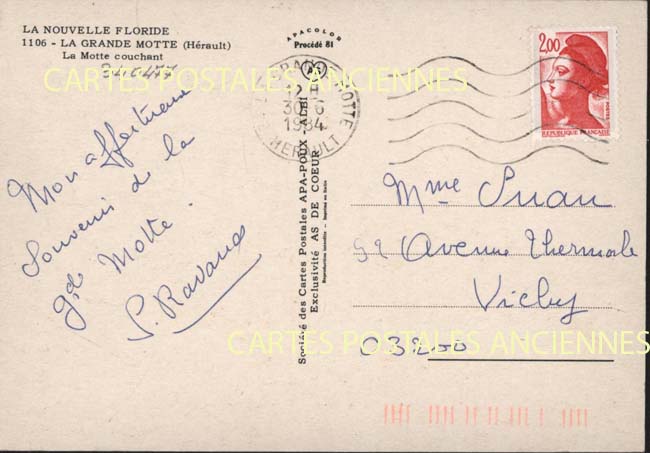 LA NOUVELLE FLORIDE
1106 - LA GRANDE MOTTE (Hérault)
La Motte couchant
APACOLOR
Procédé 81
CARTES POSTALES ANCIENNES
LA GRANDE MOTTE
12 H
30 - 6
1984
HERAULT
2,00
POSTES
REPUBLIQUE FRANÇAISE
Mon affectueux
souvenir de la
gde Motte.
Société des Cartes Postales APA-POUX ALBI
Exclusivité AS DE COEUR
Reproduction interdite - Imprimé en Italie
Mme
Avenue Thermale
Vichy
03200
CARTES POSTALES ANCIENNES